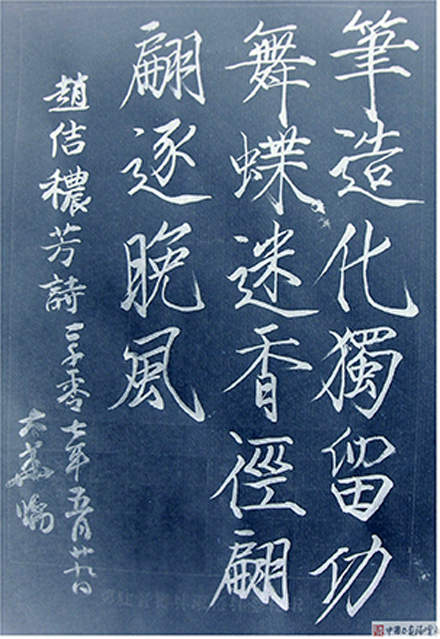 筆造化獨留功
舞蝶迷香徑翩
翩逐晚風
趙佶穠芳詩二零零七年五月廿九日
大華臨